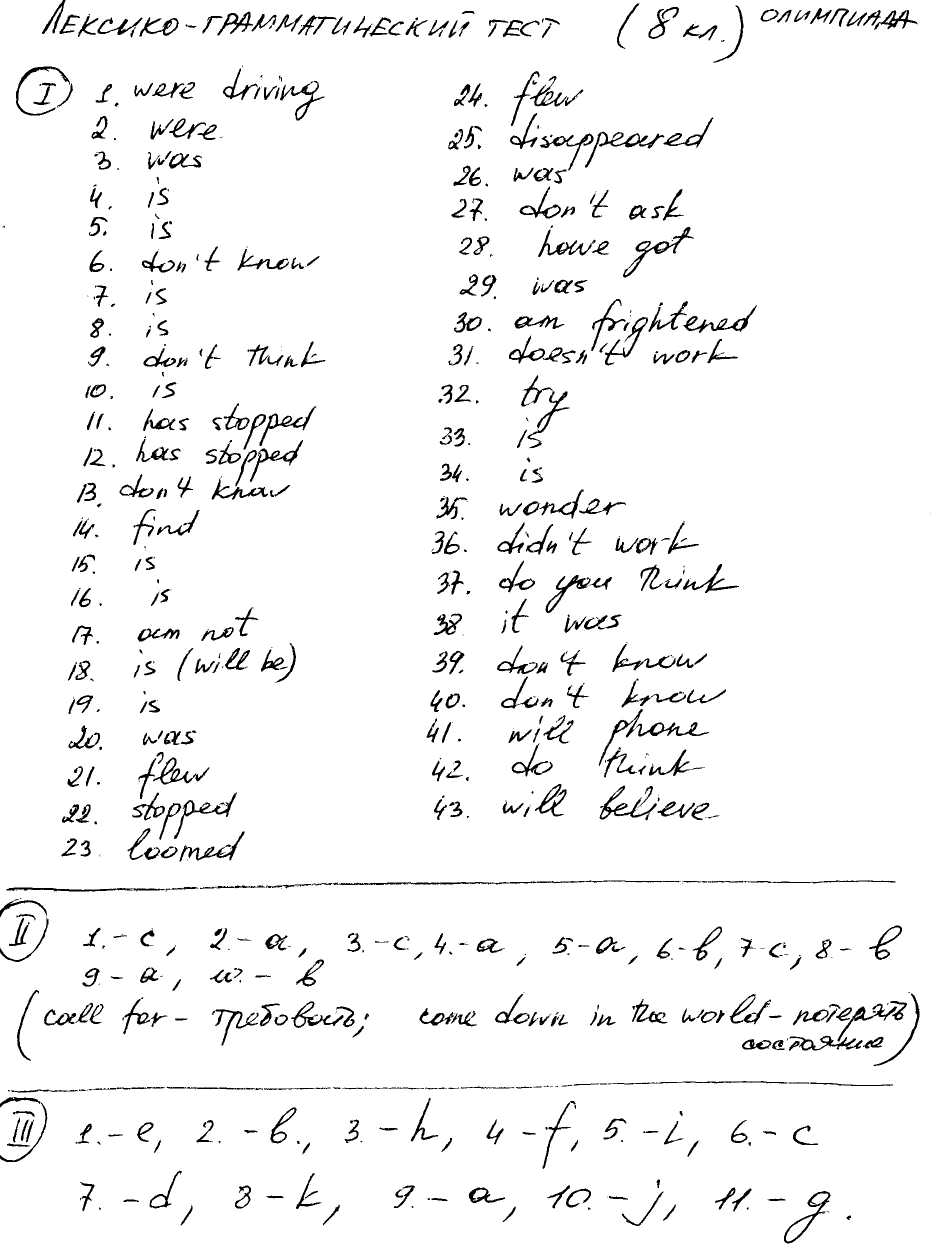 ЛЕКСИКО-ГРАММАТИЧЕСКИЙ ТЕСТ (8 кл.) ОЛИМПИАДА
I 1. were driving
2. were
3. was
4. is
5. is
6. don't know
7. is
8. is
9. don't think
10. is
11. has stopped
12. has stopped
13. don't know
14. find
15. is
16. is
17. am not
18. is (will be)
19. is
20. was
21. flew
22. stopped
23. loomed
24. flew
25. disappeared
26. was
27. don't ask
28. have got
29. was
30. am frightened
31. doesn't work
32. try
33. is
34. is
35. wonder
36. didn't work
37. do you think
38 it was
39. don't know
40. don't know
41. will phone
42. do think
43. will believe
II 1.- c, 2.- a, 3.- c, 4.- a, 5.- a, 6.- b, 7- c, 8.- b
9.- a, 10.- b
(call for - требовать; come down in the world - потерять
состояние)
III 1.- e, 2. - b., 3. - h, 4 - f, 5. - i, 6. - c
7. - d, 8 - k, 9. - a, 10. - j, 11. - g.